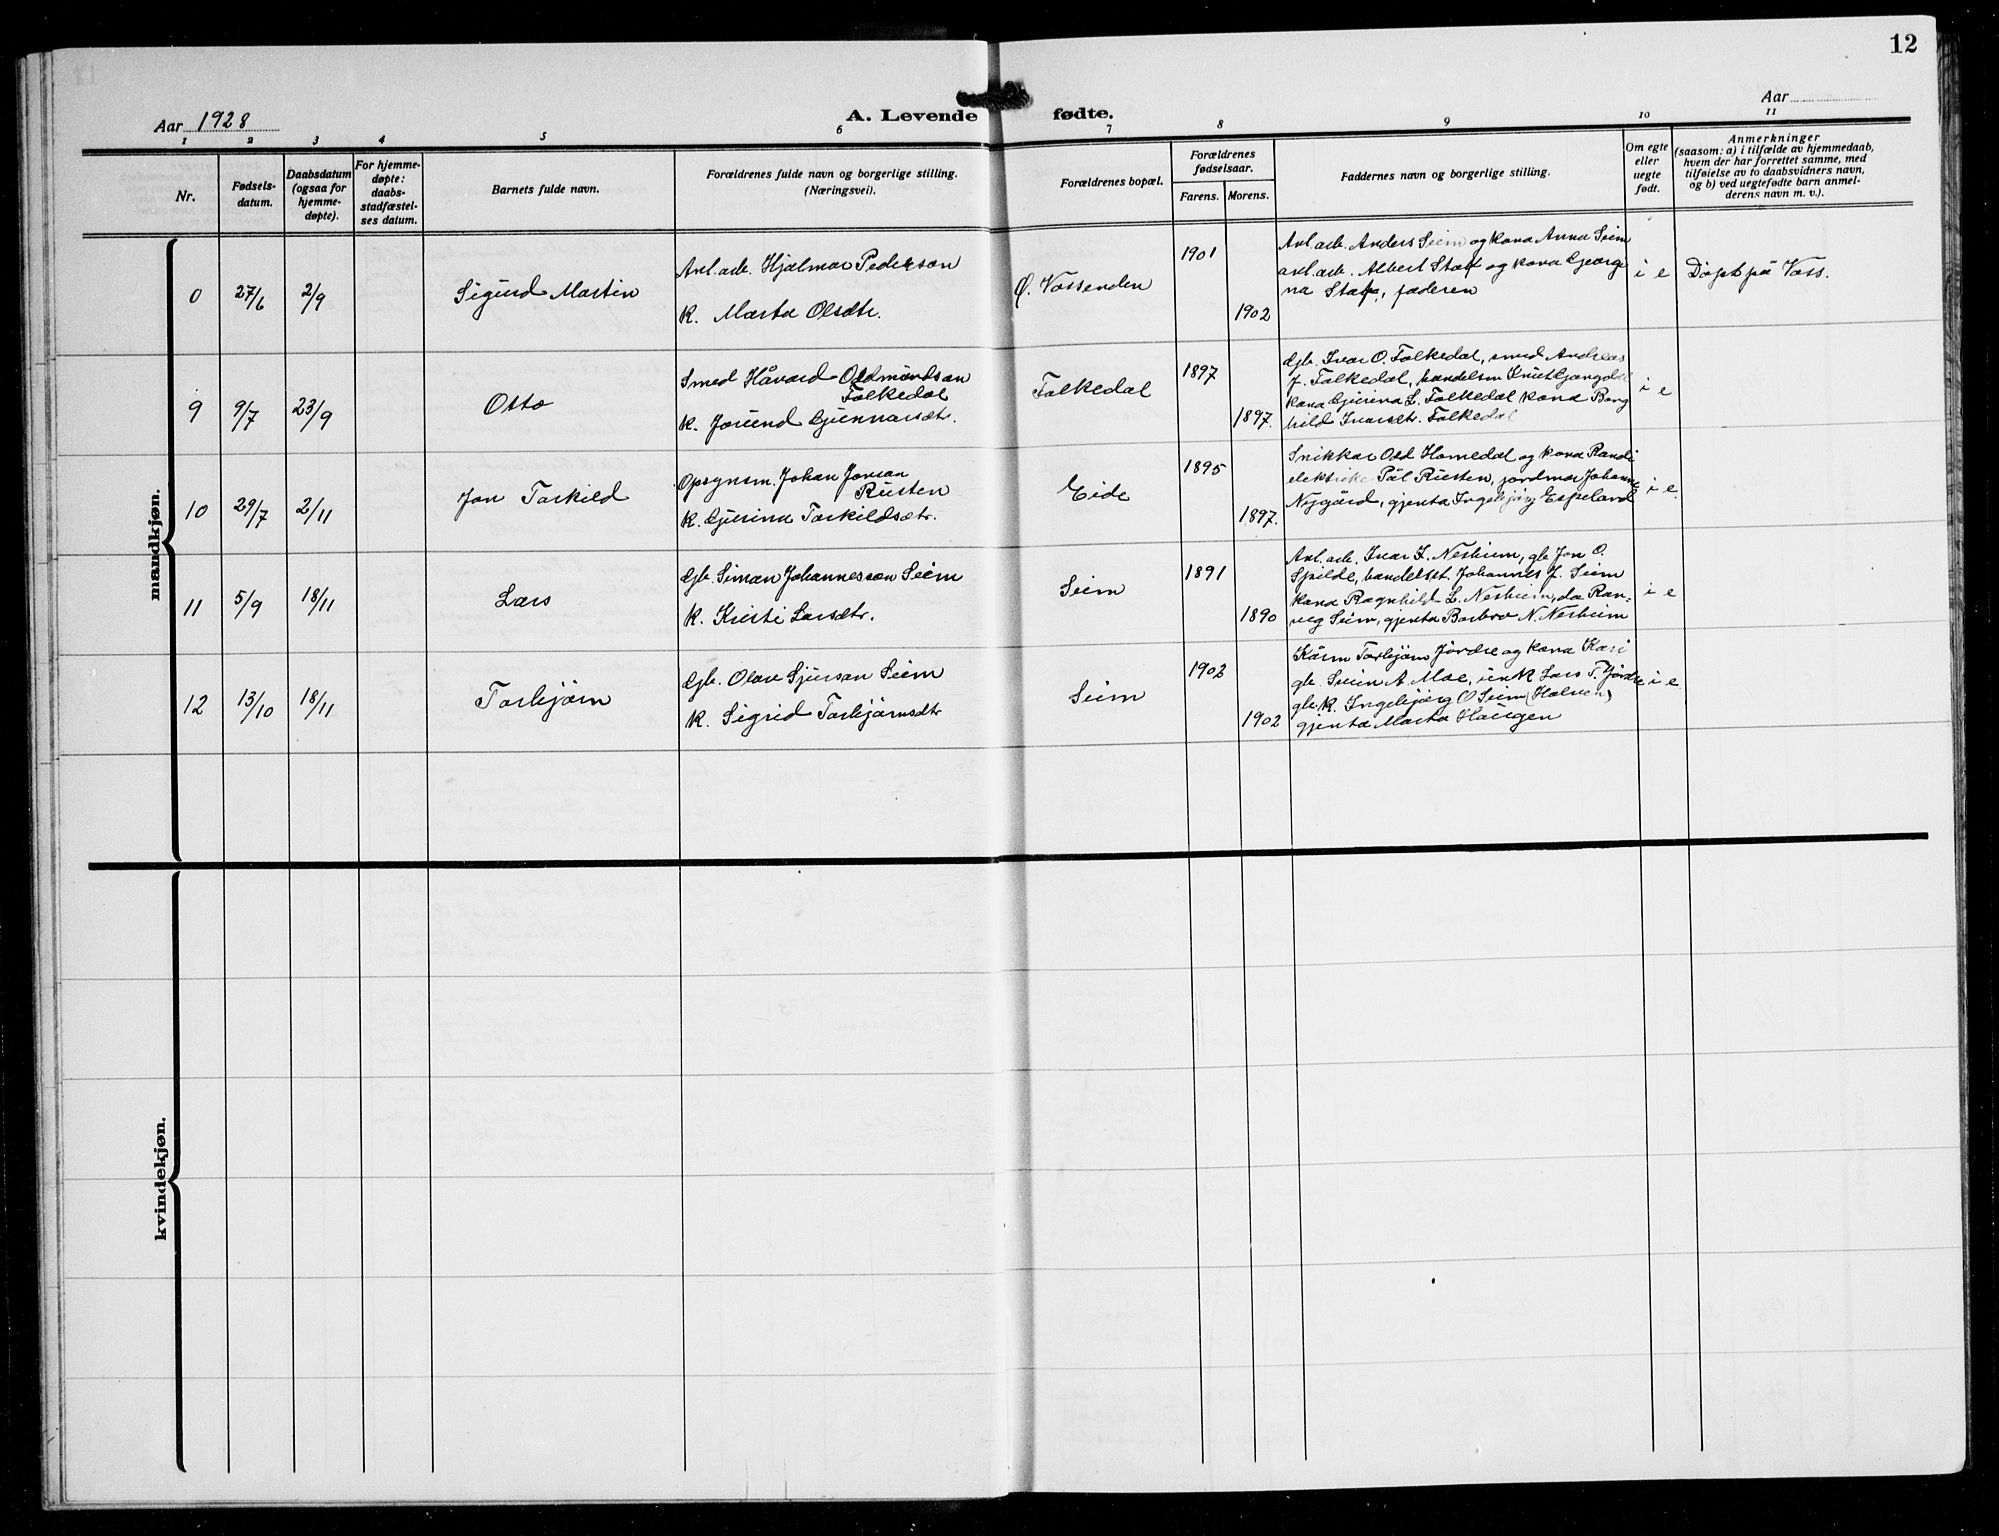 12
Aar 1928
A. Levende fødte.
Aar
1 2 3 4 5 6 7 8 9 10 11
Nr.
Fødsels-
datum.
Daabsdatum
(ogsaa for
hjemme-
døpte).
For hjemme-
døpte:
daabs-
stadfæstel-
ses datum.
Barnets fulde navn.
Forældrenes fulde navn og borgerlige stilling.
(Næringsvei).
Forældrenes bopæl.
Forældrenes
fødselsaar.
Farens. Morens.
Faddernes navn og borgerlige stilling.
Om egte
eller
uegte
født.
Anmerkninger
(saasom: a) i tilfælde av hjemmedaab,
hvem der har forrettet samme, med
tilføielse av to daabsvidners navn,
og b) ved uegtefødte barn anmel-
derens navn m. v.).
mandkjøn.
0 27/6 2/9 Sigurd Martin
Anl. arb. Hjalmar Pederson
K. Marta Olsdtr.
Ø. Vassenden
1901
1902
Anl. arb. Anders Seim og kona Anna Seim
anl. arb. Albert og kona Georgi
na faderen
i e
Døpt på Voss.
9 9/7 23/9 Otto
Smed Håvard Oddmundson
Folkedal
K. Jorund Gunnarsdtr.
Folkedal
1897
1897.
Gb. Ivar O. Folkedal, smed Andreas
J. Folkedal, handelsm Knut
kona Gurina L. Folkedal kona Borg
hild Ivarsdtr. Folkedal
i e
10 29/7 2/11 Jon Torkild
Opsynsm. Johan Jonson
Rusten
K. Gurina Torkildsdtr.
Eide
1895
1897.
Snikkar Odd Homedal og kona Randi
elektrike Pål Rusten, jordmor Johanne
Nygård, gjenta Ingebjørg Espeland
i e.
11 5/9 18/11 Lars
Gb. Simon Johannesson Seim
K. Kristi Larsdtr.
Seim
1891
1890
Anl. arb. Ivar I. Nesheim, gb Jon O.
Spilde, handelsst. Johannes J. Seim
kona Ragnhild L. Nesheim, do Ran-
veig Seim, gjenta Borbro N. Nesheim
i e
12 13/10 18/11 Torbjørn
Gb. Olav Sjurson Seim
K. Sigrid Torbjørnsdtr
Seim
1902
1902
Kårm Torbjørn Jordre og kona Kari
gb. Svein A. Moe, unk Lars T. Jordre
gb. K. Ingebjørg O Seim (Halven)
gjenta Marta Haugen
i e
kvindekjøn.